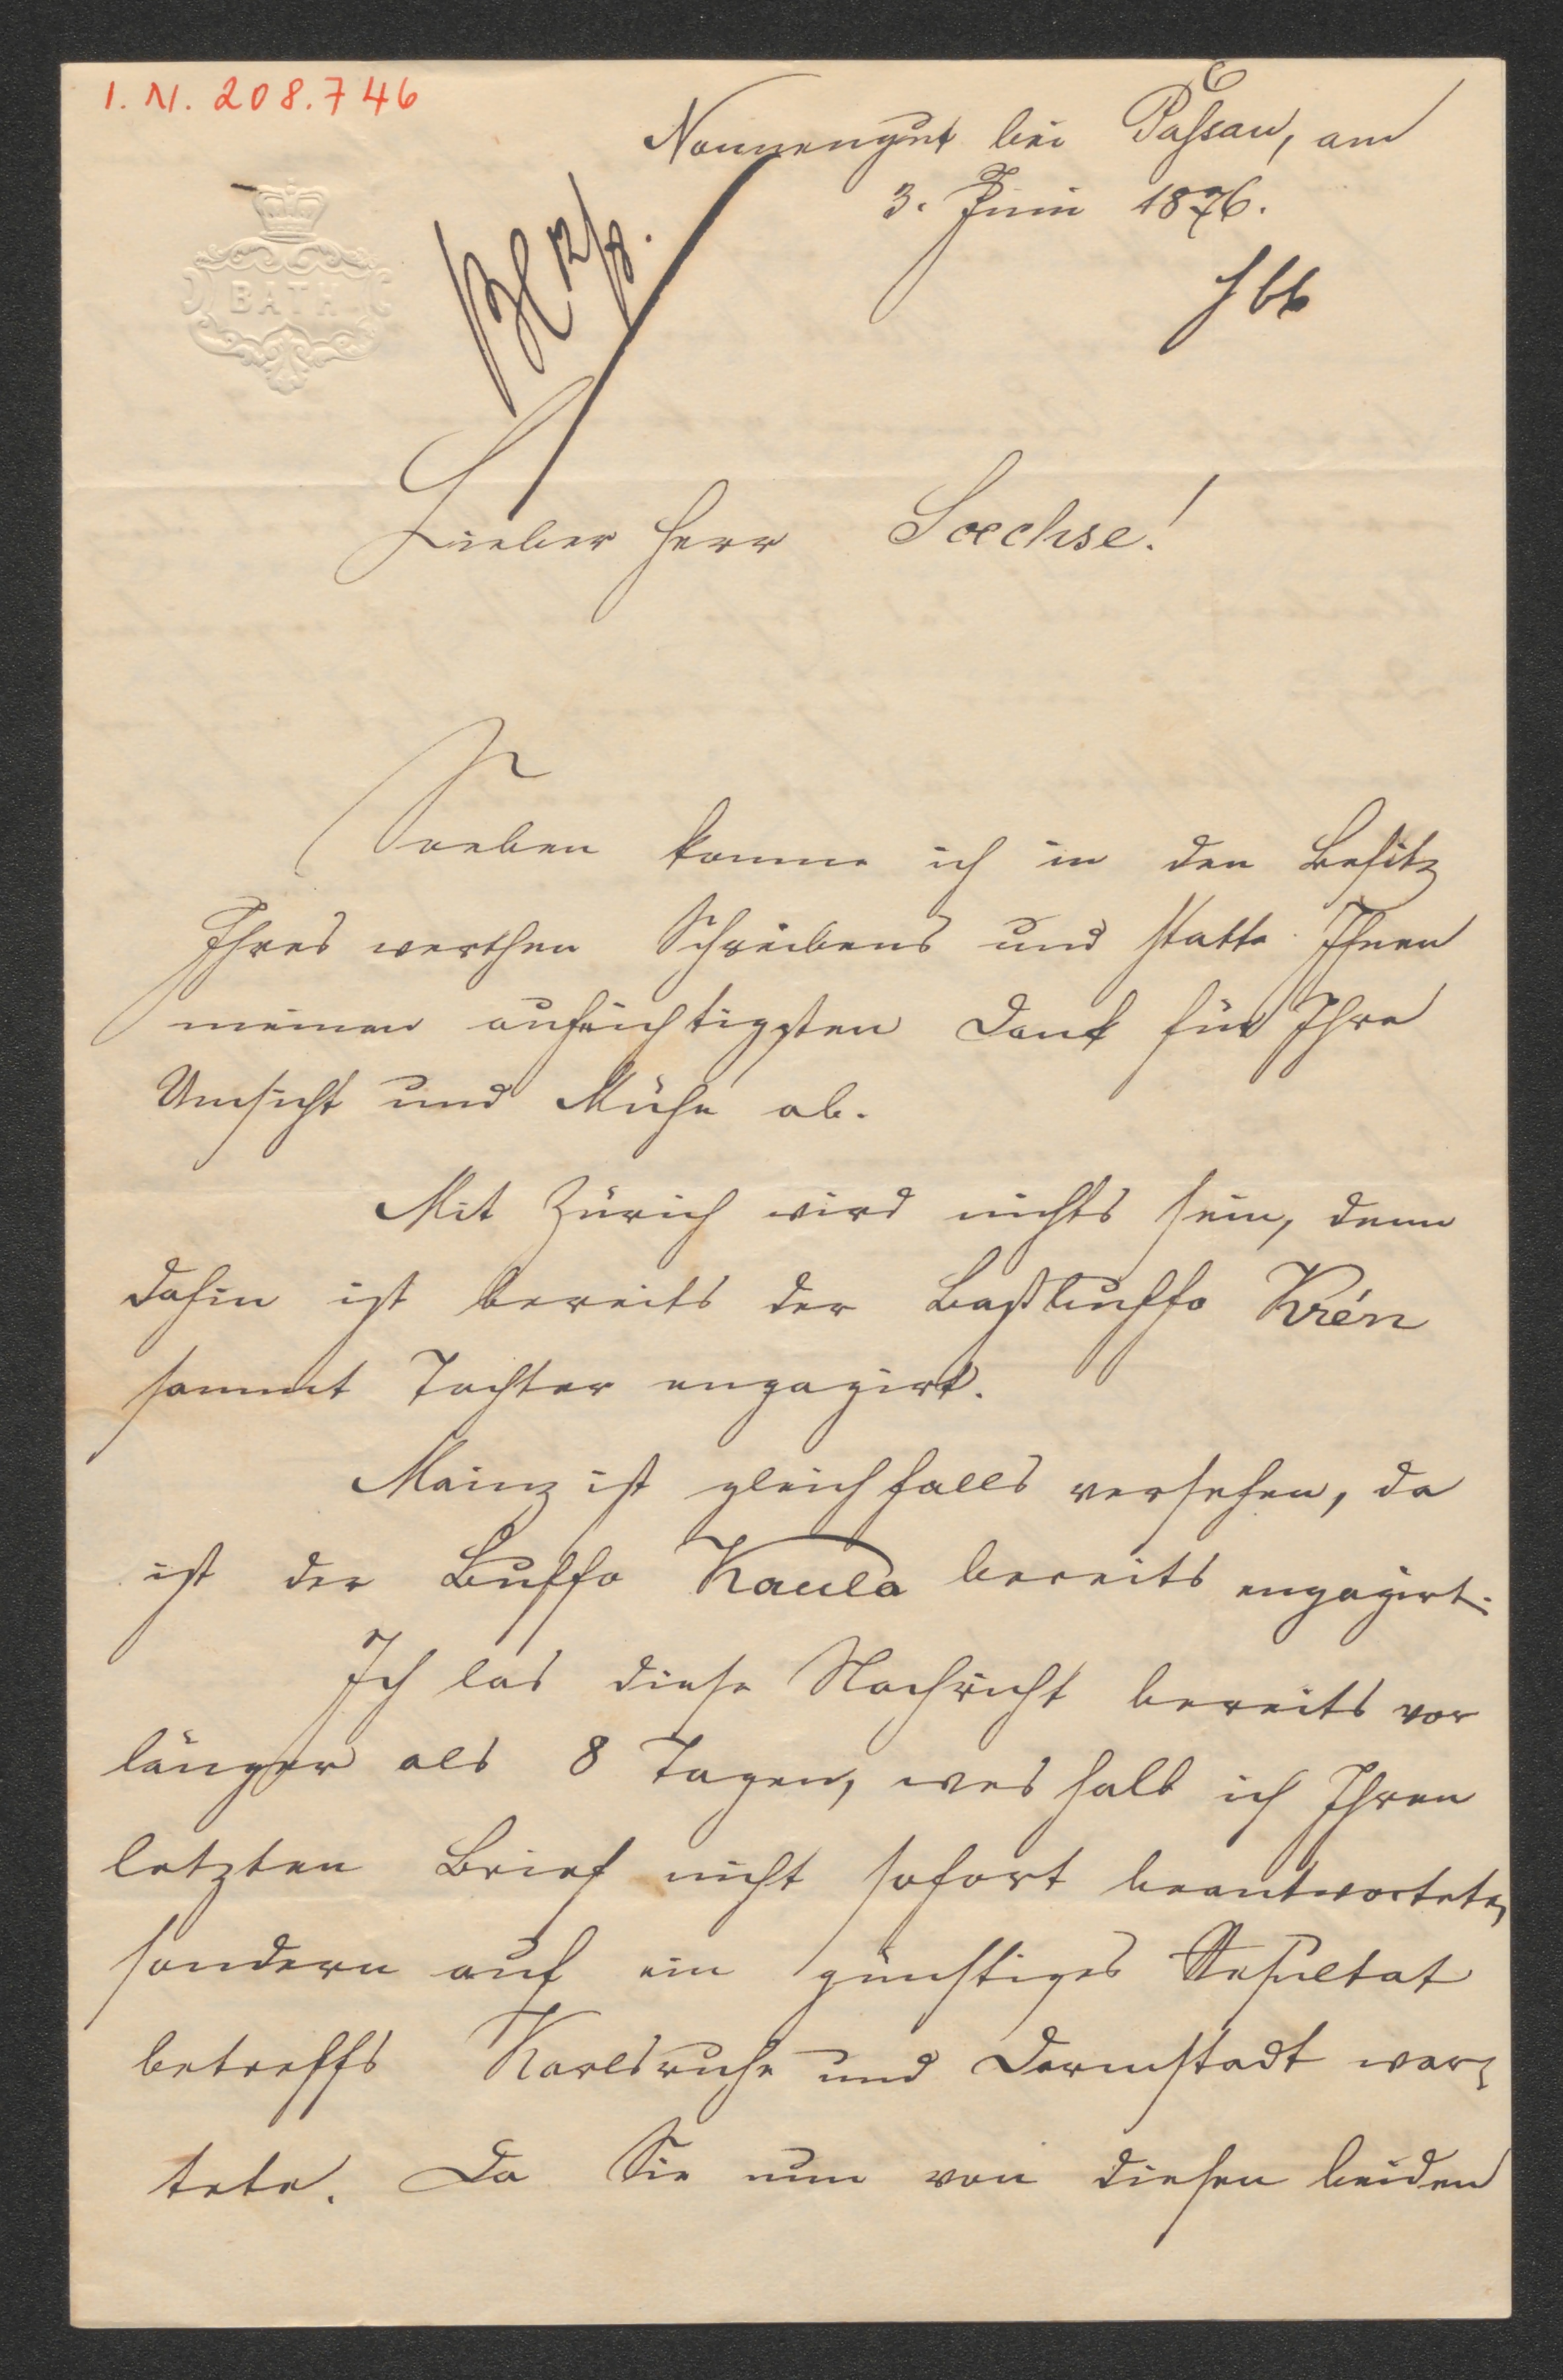 I. N. 208.746
Nonnengut bei Passau, am
3. Juni 1876.
BATH
Lieber Herr Soechse!
Soeben komme ich in den Besitz
Ihres werthen Schreibens und statte Ihnen
meinen aufrichtigsten Dank für Ihre
Umsicht und Mühe ab.
Mit Zürich wird nichts sein, denn
dahin ist bereits der Baßbuffo Krén
sammt Tochter engagirt.
Mainz ist gleichfalls versehen, da
ist der Buffo Kaula bereits engagirt.
Ich las diese Nachricht bereits vor
länger als 8 Tagen, weshalb ich Ihren
letzten Brief nicht sofort beantwortete,
sondern auf ein günstiges Resultat
betreffs Karlsruhe und Darmstadt war-
tete. Da Sie nun von diesen beiden